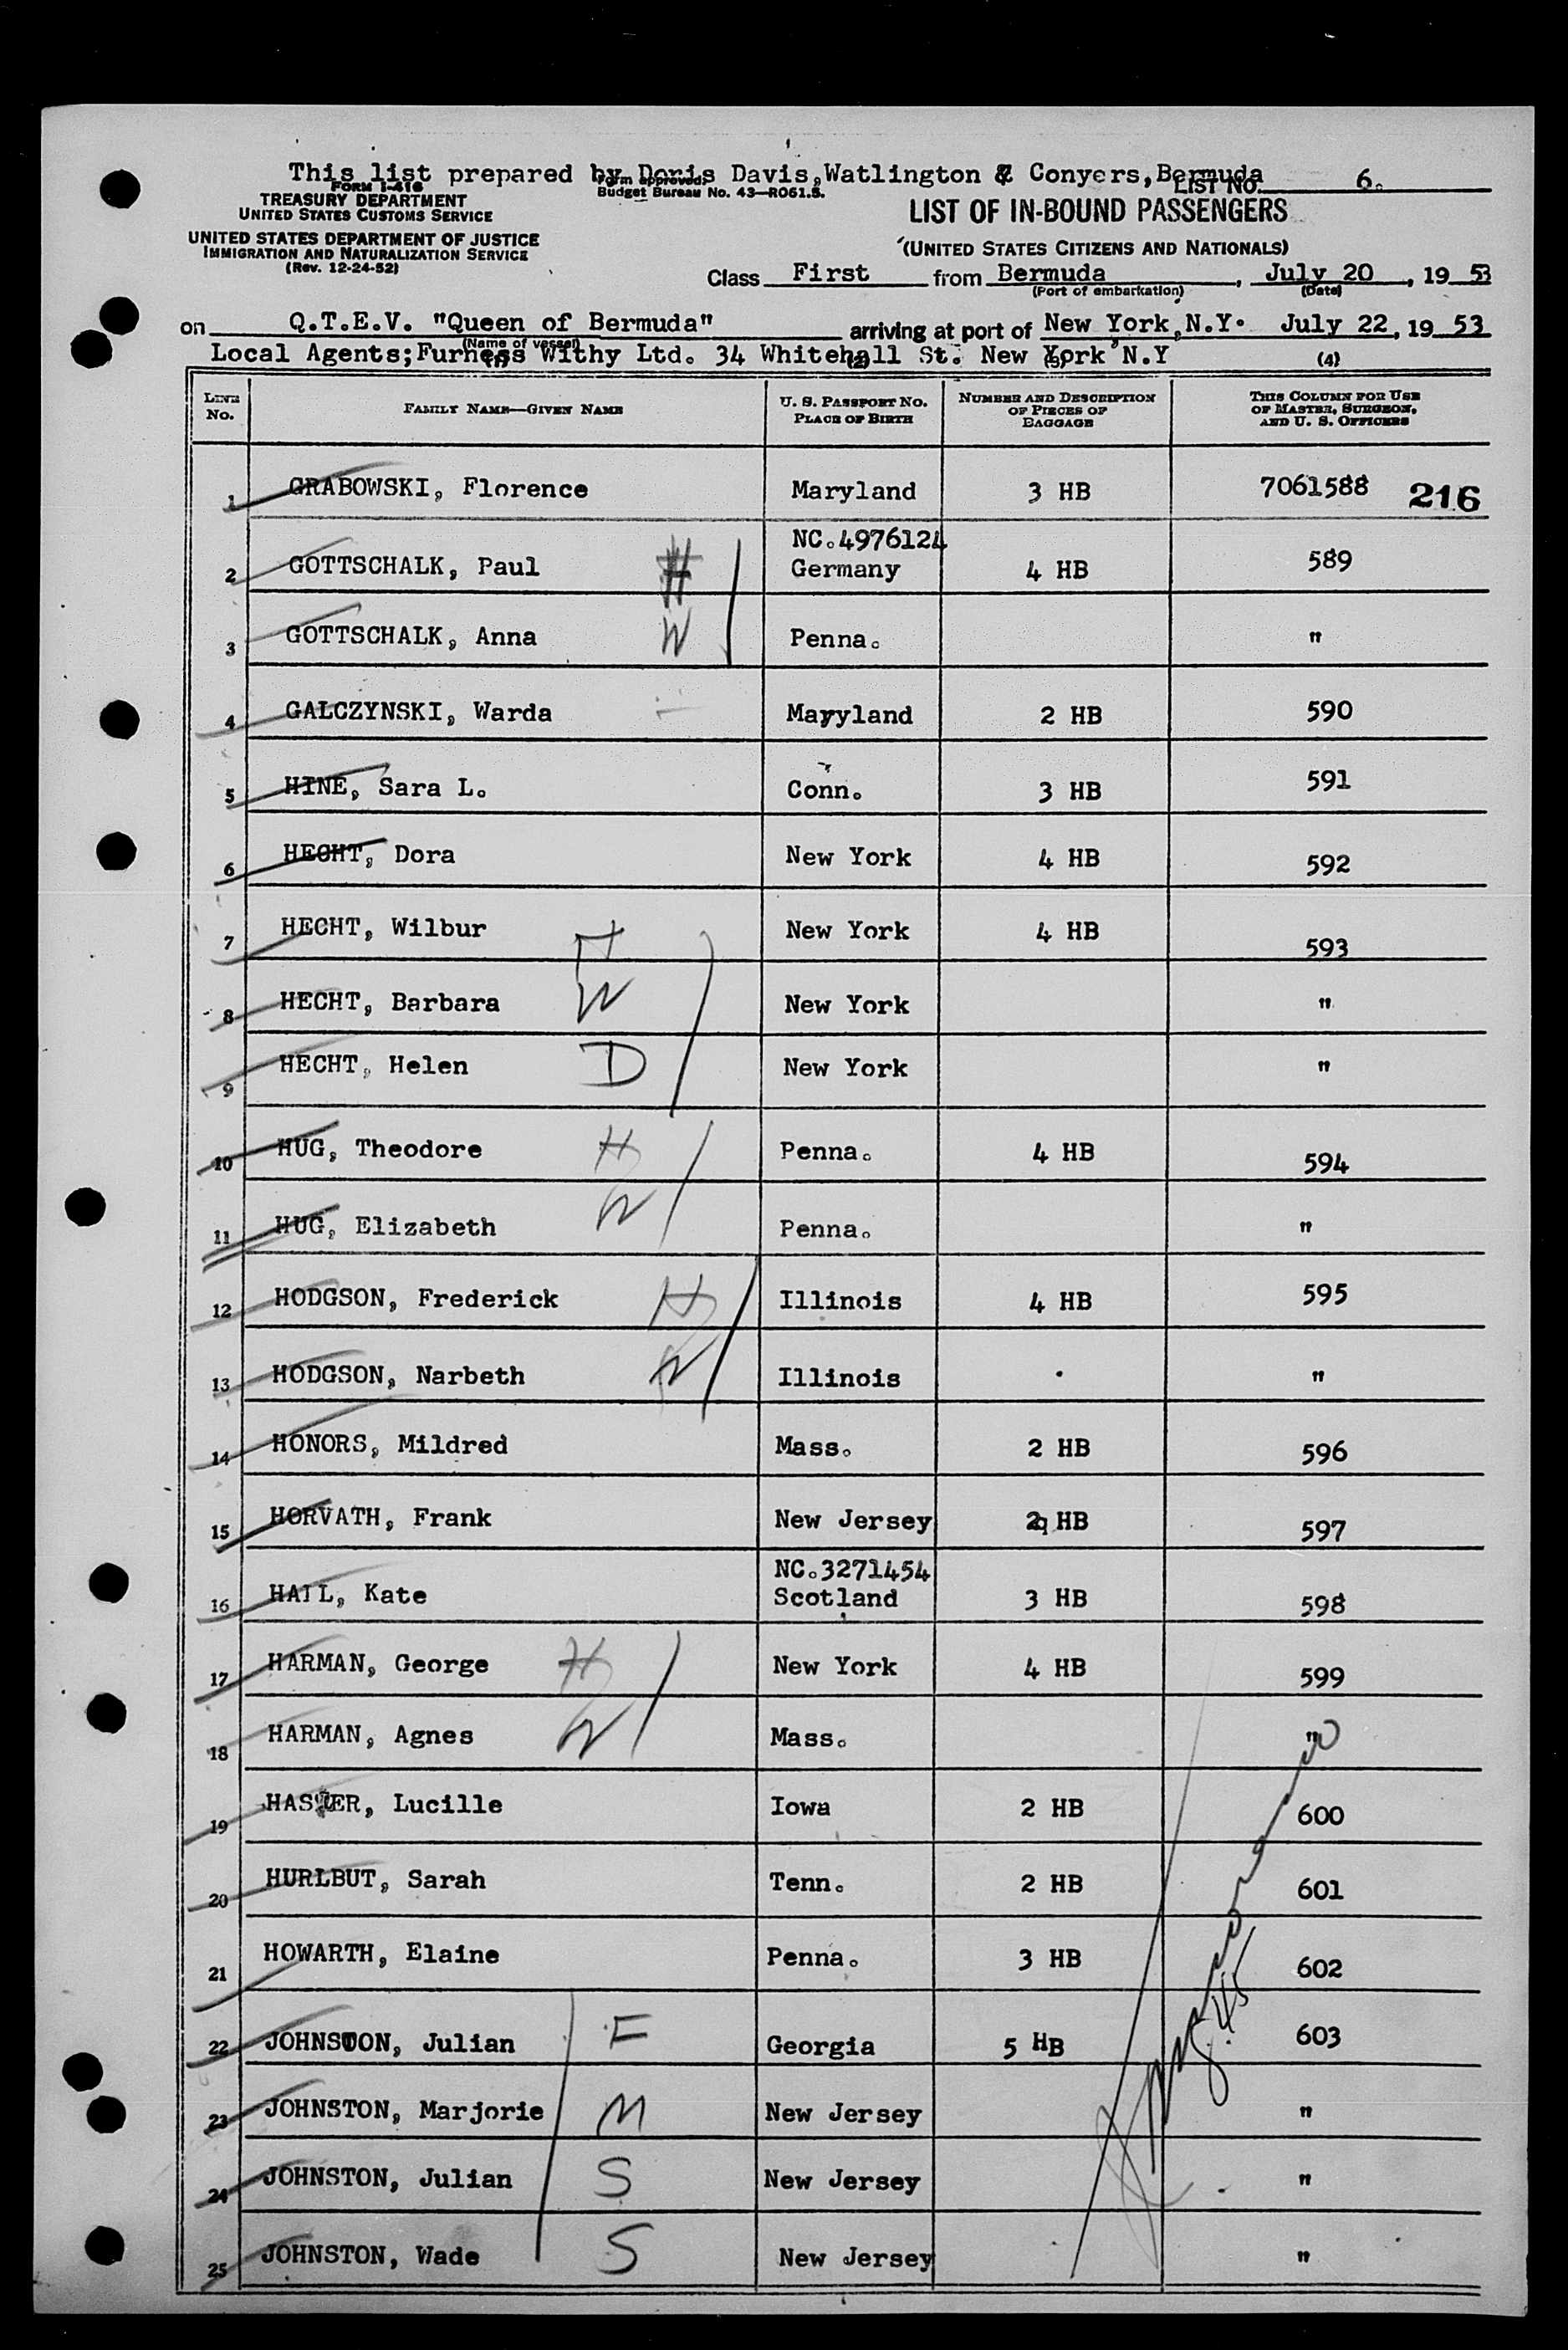 This list prepared by Doris Davis,Watlington & Conyers,Bermuda
LIST NO. 6.
FORM I-416
TREASURY DEPARTMENT
UNITED STATES CUSTOMS SERVICE
Form approved.
Budget Bureau No. 43—R061.5.
LIST OF IN-BOUND PASSENGERS
UNITED STATES DEPARTMENT OF JUSTICE
IMMIGRATION AND NATURALIZATION SERVICE
(Rev. 12-24-52)
(UNITED STATES CITIZENS AND NATIONALS)
Class First from Bermuda, July 20, 1953
(Port of embarkation) (Date)
on Q.T.E.V. "Queen of Bermuda" arriving at port of New York,N.Y. July 22, 1953
(Name of vessel)
Local Agents;Furness Withy Ltd. 34 Whitehall St. New York N.Y
(1) (2) (3) (4)
LINE No. FAMILY NAME—GIVEN NAME U. S. PASSPORT NO. PLACE OF BIRTH NUMBER AND DESCRIPTION OF PIECES OF BAGGAGE THIS COLUMN FOR USE OF MASTER, SURGEON, AND U. S. OFFICERS
1 GRABOWSKI, Florence Maryland 3 HB 7061588 216
NC.4976124
2 GOTTSCHALK, Paul H Germany 4 HB 589
3 GOTTSCHALK, Anna W Penna. "
4 GALCZYNSKI, Warda Maryland 2 HB 590
5 HINE, Sara L. Conn. 3 HB 591
6 HECHT, Dora New York 4 HB 592
7 HECHT, Wilbur H New York 4 HB 593
8 HECHT, Barbara W New York "
9 HECHT, Helen D New York "
10 HUG, Theodore H Penna. 4 HB 594
11 HUG, Elizabeth W Penna. "
12 HODGSON, Frederick H Illinois 4 HB 595
13 HODGSON, Narbeth W Illinois "
14 HONORS, Mildred Mass. 2 HB 596
15 HORVATH, Frank New Jersey 2 HB 597
NC.3271454
16 HAIL, Kate Scotland 3 HB 598
17 HARMAN, George H New York 4 HB 599
18 HARMAN, Agnes W Mass. "
19 Lucille Iowa 2 HB 600
20 HURLBUT, Sarah Tenn. 2 HB 601
21 HOWARTH, Elaine Penna. 3 HB 602
22 JOHNSTON, Julian F Georgia 5 HB 603
23 JOHNSTON, Marjorie M New Jersey "
24 JOHNSTON, Julian S New Jersey "
25 JOHNSTON, Wade S New Jersey "